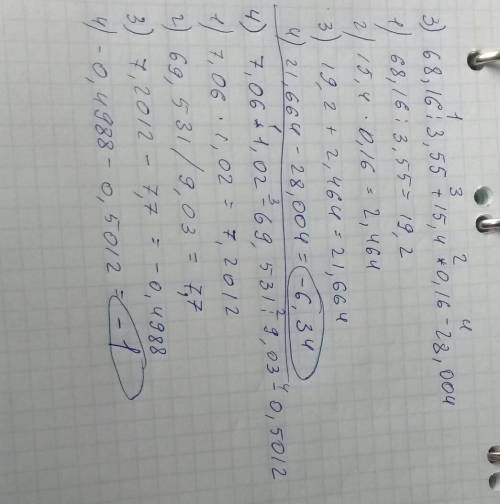 3) 68,16 : 3,55 + 15,4 * 0,16 - 28,004
1 3 2 4
1) 68,16 : 3,55 = 19,2
2) 15,4 · 0,16 = 2,464
3) 19,2 + 2,464 = 21,664
4) 21,664 - 28,004 = -6,34
4) 7,06 * 1,02 - 69,531 : 9,03 - 0,5012
1 3 2 4
1) 7,06 · 1,02 = 7,2012
2) 69,531 / 9,03 = 7,7
3) 7,2012 - 7,7 = -0,4988
4) -0,4988 - 0,5012 = -1